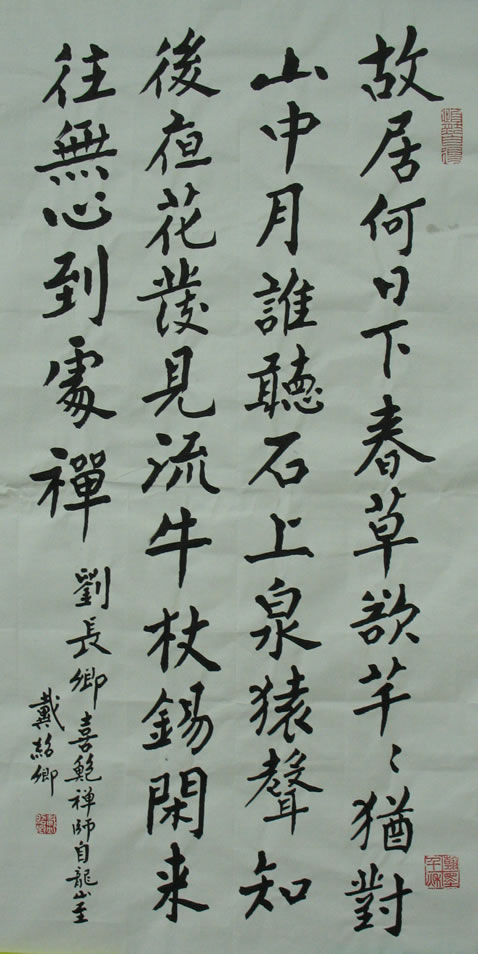 故居何日下春草欲芊〻猶對
山中月誰聽石上泉猿聲知
後夜花發見流牛杖錫閑来
往無心到處禪
劉長卿喜鮑禅師自龍山至
戴紹卿